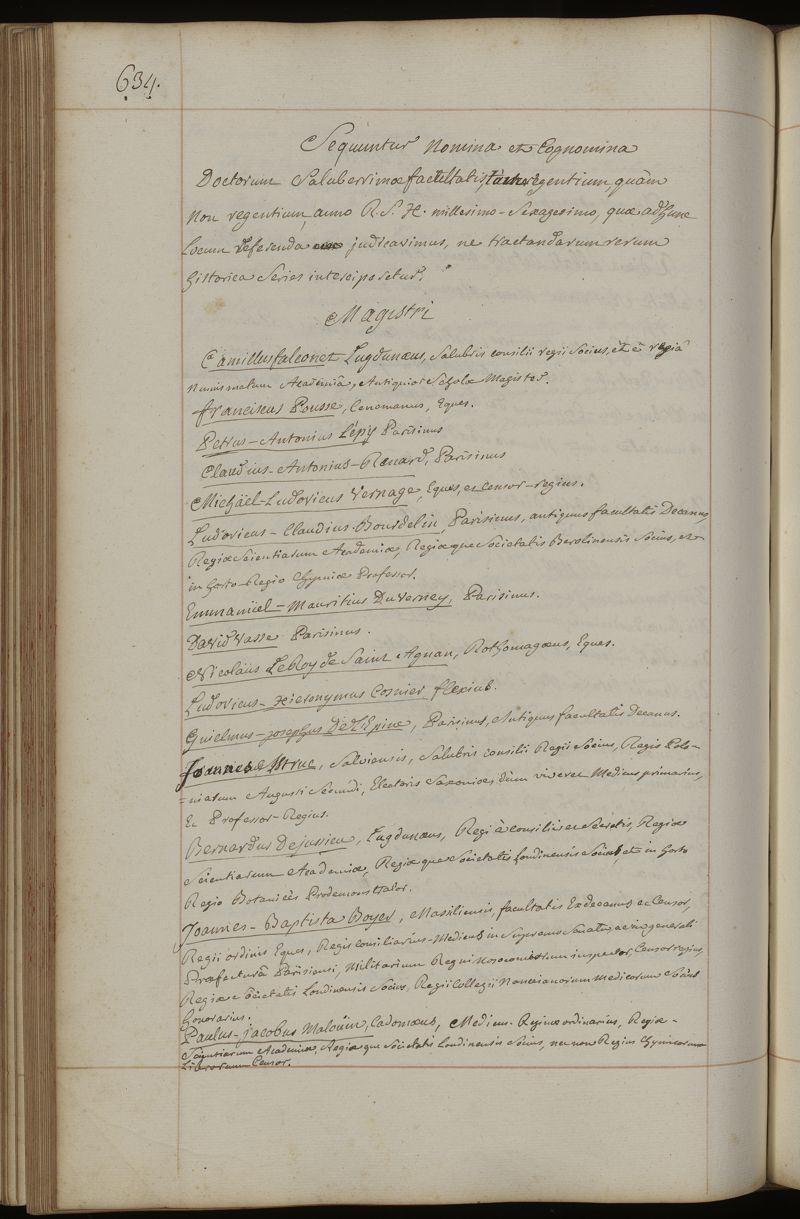 634.
Sequuntur nomina et Cognomina
Doctorum Saluberrimæ facultatis, tam regentium, quàm
non regentium, anno R. S. H. millesimo-sexagesimo, quæ ad hunc
locum deferenda judicavimus, ne tractandarum rerum
historica series interciperetur.
Magistri
Camillus falconet Lugdunæus, Salubris consilii regii Socius, et è regiâ
Numismatum Academiâ, Antiquior Scholæ Magister.
franciscus Pousse, Cenomanus, Eques.
Petrus-Antonius Lépy Parisinus
Claudius-Antonius-Renard, Parisinus
Michäel-Ludovicus Vernage, Eques, et Censor-regius.
Ludovicus-Claudius Bourdelin, Parisinus, antiquus facultatis Decanus,
Regiæ Scientiarum Academiæ, Regiæque Societatis Berolinensis Socius, et
in horto-Regio Chymiæ Professor.
Emmanüel-Mauritius DuVerney, Parisinus.
David Vasse Parisinus.
Nicolaüs LeRoy de Saint Agnan, Rothomagæus, Eques.
Ludovicus-Hieronymus Cosnier flexius.
Guielmus-josephus De L'Epine, Parisinus, Antiquus facultatis Decanus.
Joannes Astruc, Salviensis, Salubris consilii Regii Socius, Regis Polo-
=niarum Augusti Secundi, Electoris Saxoniæ, dum viveret Medicus primarius,
Et Professor-Regius.
Bernardus Dejussieu, Lugdunæus, Regi à consiliis et Secretis, Regiæ
Scientiarum Academiæ, Regiæque Societatis Londinensis Socius, et in horto
Regio Botanices Prodemonstrator.
Joannes-Baptista Boyer, Massiliensis, facultatis Exdecanus et Censor,
Regii ordinis Eques, Regis consiliarius-Medicus in Supremo Senatu ac in generali
Præfecturâ Parisiensi, Militarium Regni Nosocomiorum inspector, Censor regius,
Regiæ Societatis Londinensis Socius, Regii Collegii Nanceianorum Medicorum Socius
honorarius.
Paulus-jacobus Malouin, Cadomæus, Medicus Reginæ ordinarius, Regiæ-
Scientiarum Academiæ, Regiæque Societatis Londinensis Socius, nec non Regius Chymicorum
Librorum Censor.